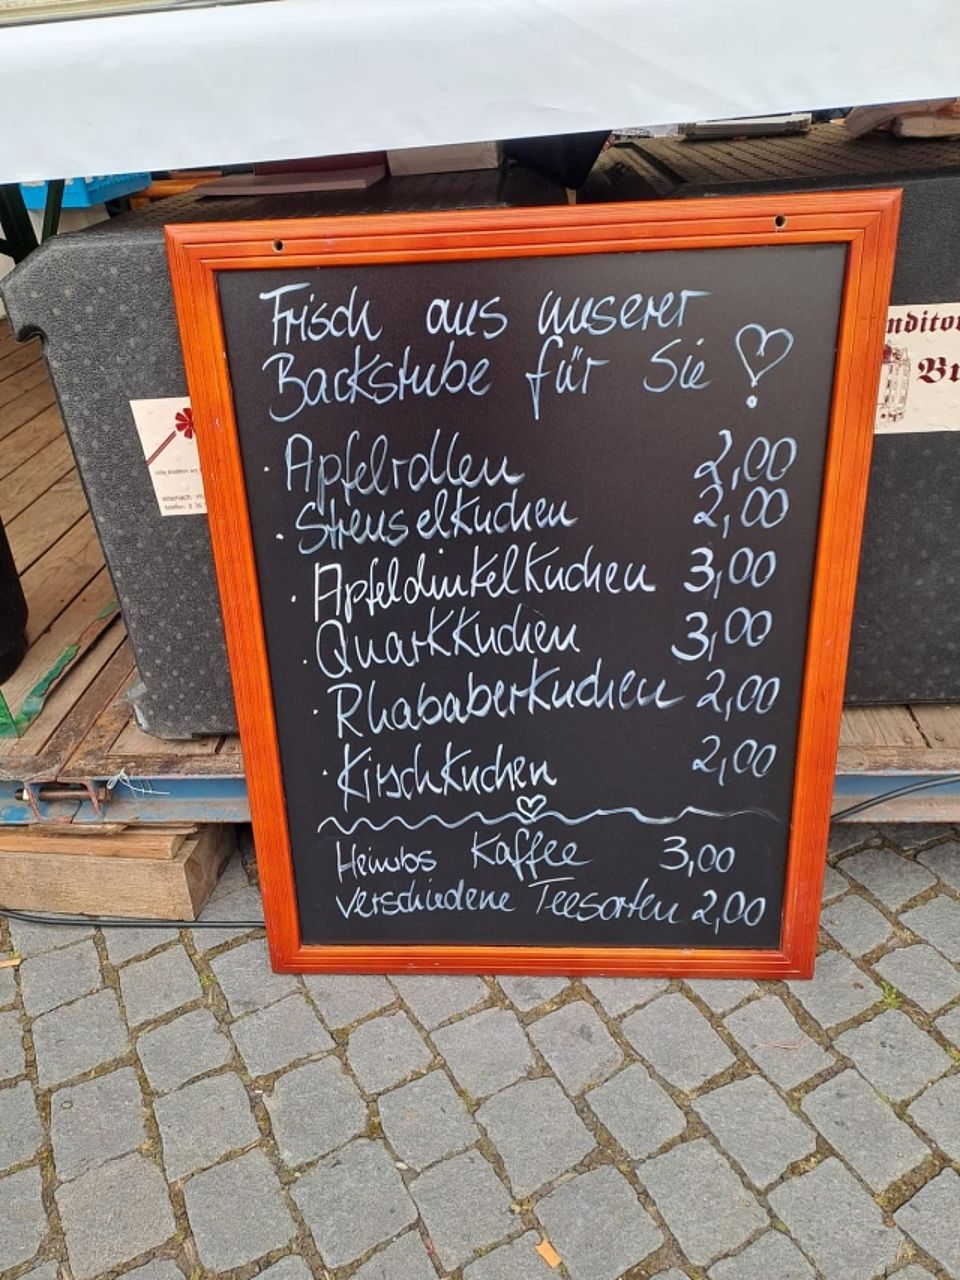 Frisch aus unserer
Backstube für Sie
· Apfelrollen 2,00
· Streuselkuchen 2,00
· Apfeldinkelkuchen 3,00
· Quarkkuchen 3,00
· Rhababerkuchen 2,00
· Kirschkuchen 2,00
Kaffee 3,00
verschiedene Teesorten 2,00
nditor
Bu
eisenach